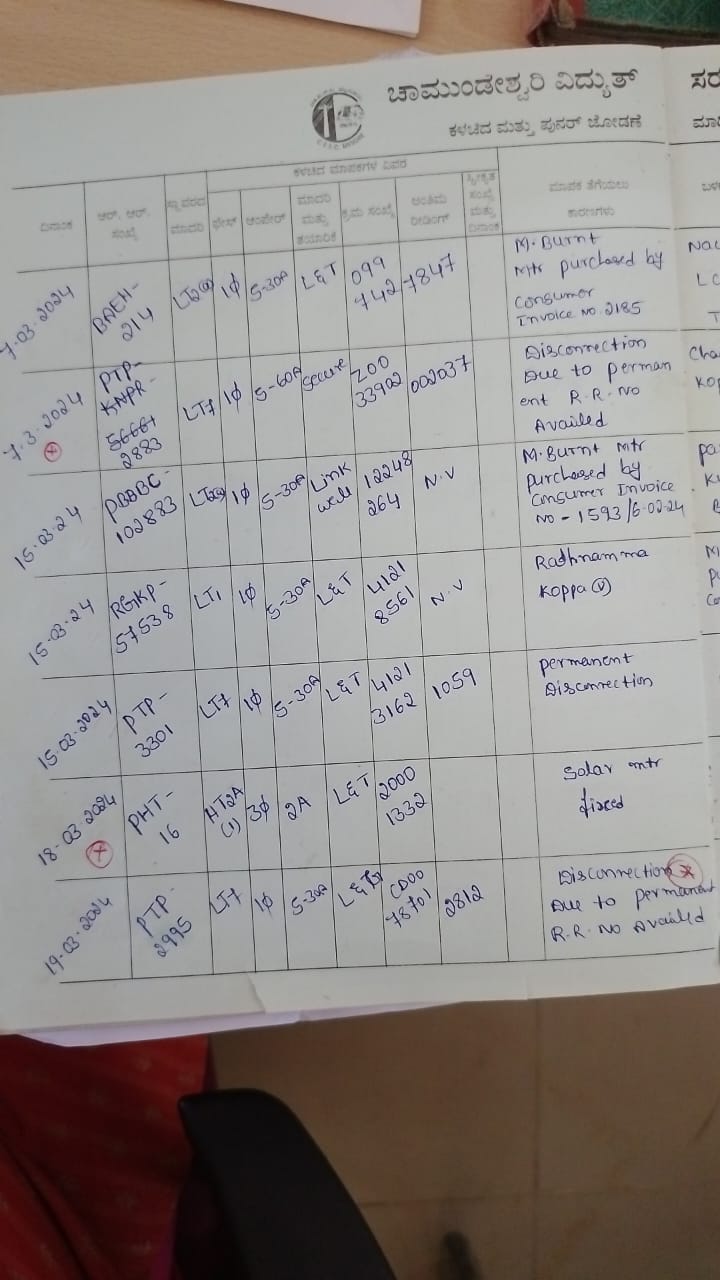 ಚಾಮುಂಡೇಶ್ವರಿ ವಿದ್ಯುತ್ ಸರ
ಕಳಚಿದ ಮತ್ತು ಪುನರ್ ಜೋಡಣೆ ಮಾ
ಕಳಚಿದ ಮಾಪಕಗಳ ವಿವರ
ದಿನಾಂಕ ಆರ್. ಆರ್. ಸಂಖ್ಯೆ ಸ್ಥಾವರದ ಮಾದರಿ ಫೇಸ್ ಆಂಪೇರ್ ಮಾದರಿ ಮತ್ತು ತಯಾರಿಕೆ ಕ್ರಮ ಸಂಖ್ಯೆ ಅಂತಿಮ ರೀಡಿಂಗ್ ಸ್ವೀಕೃತ ಸಂಖ್ಯೆ ಮತ್ತು ದಿನಾಂಕ ಮಾಪಕ ತೆಗೆಯಲು ಕಾರಣಗಳು ಬಳ
7-03-2024 BAEH- 1Φ 5-30A L&T 099 7847 M. Burnt
214 742 Mtr purchased by
Consumer
Invoice No. 2185
7.3.2024 PTP- LT7 1Φ 5-60A Secure 200 002037 Disconnection
KNPR- 33902 Due to perman
2883 ent R.R. No
Availed
15-03-24 PBBBC- 1Φ 5-30A Link 12248 N.V M. Burnt Mtr
102883 well 264 purchased by
Consumer Invoice
No - 1593/6-02-24
15-03-24 RGKP- LT1 1Φ 5-30A L&T 4121 N.V Radhnamma
57538 8561 Koppa (V)
15-03-2024 PTP- LT7 1Φ 5-30A L&T 4121 1059 permanent
3301 3162 Disconnection
18-03-2024 PHT- HT2A 3Φ 2A L&T 2000 Solar mtr
16 (1) 1332 fixed
19-03-2024 PTP- LT7 1Φ 5-30A L&T CD00 2812 Disconnection
2995 78701 Due to permanent
R.R. No Availed